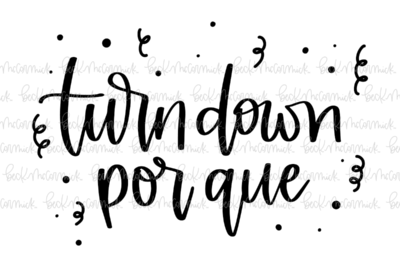 turn down
por que